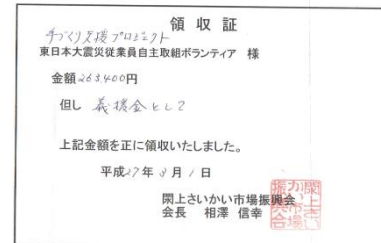 領収証
手づくり支援プロジェクト
東日本大震災従業員自主取組ボランティア 様
金額263,400円
但し 義援金として
上記金額を正に領収いたしました。
平成27年3月1日
閖上さいかい市場振興会
会長 相澤 信幸